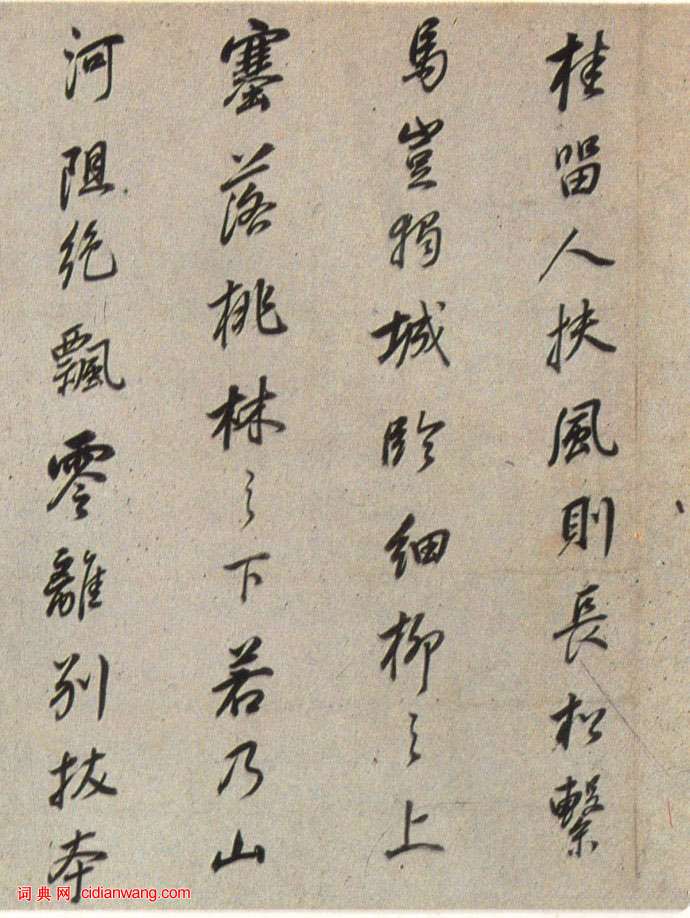 桂留人扶風則長松繫
馬豈獨城臨細柳之上
塞落桃林之下若乃山
河阻絶飄零離別拔本
词典网 cidianwang.com